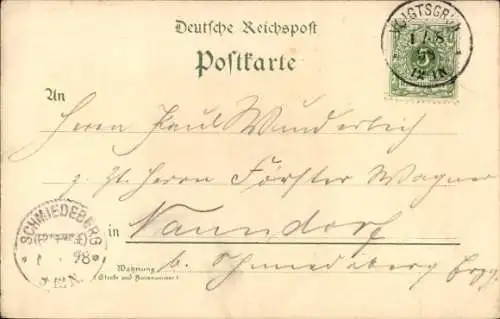 Deutsche Reichspost
Postkarte
VOIGTSGRÜN
An
Herrn Paul Wunderlich
z. Zt. Herrn Förster Wagner
in Naundorf
SCHMIEDEBERG
98
Wohnung
(Straße und Hausnummer)
b. Schmiedeberg Erzg.